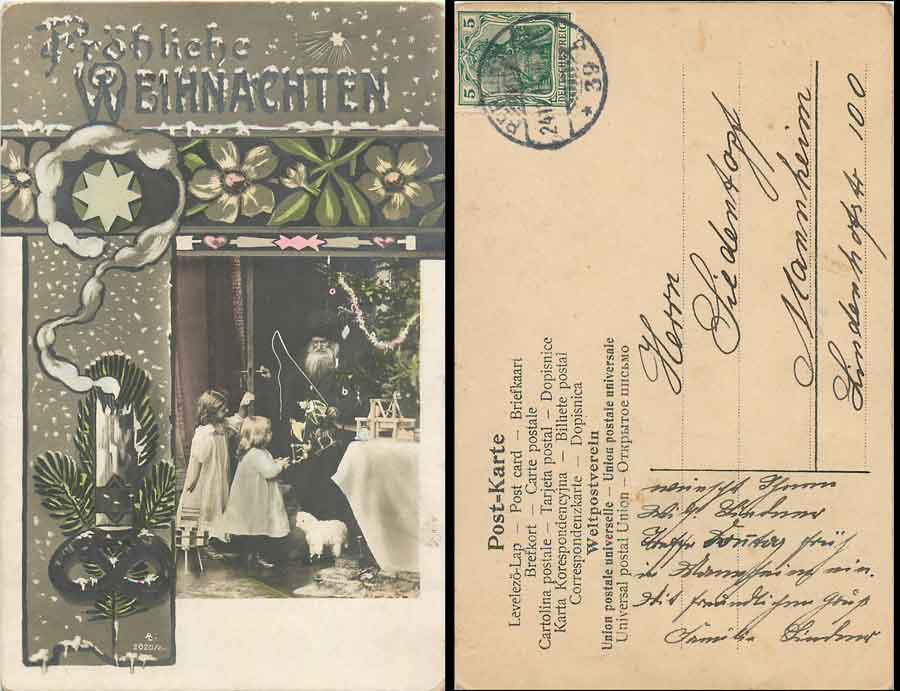 Fröhliche
WEIHNACHTEN
2020/
5 5
DEUTSCHES REICH
24.
* 39
Post-Karte
Levelező-Lap – Post card – Briefkaart
Brefkort – Carte postale
Cartolina postale – Tarjeta postal – Dopisnice
Karta Korespondencyjna – Bilhete postal
Correspondenzkarte – Dopisnica
Weltpostverein
Union postale universelle – Union postale universale
Universal postal Union – Открытое письмо
Herrn
Siedentopf
Mannheim
Lindenhofstr 100
wünscht Ihnen
Lindner
Treffe Sonntag früh
in Mannheim ein.
Mit freundlichem Gruß
Familie Lindner